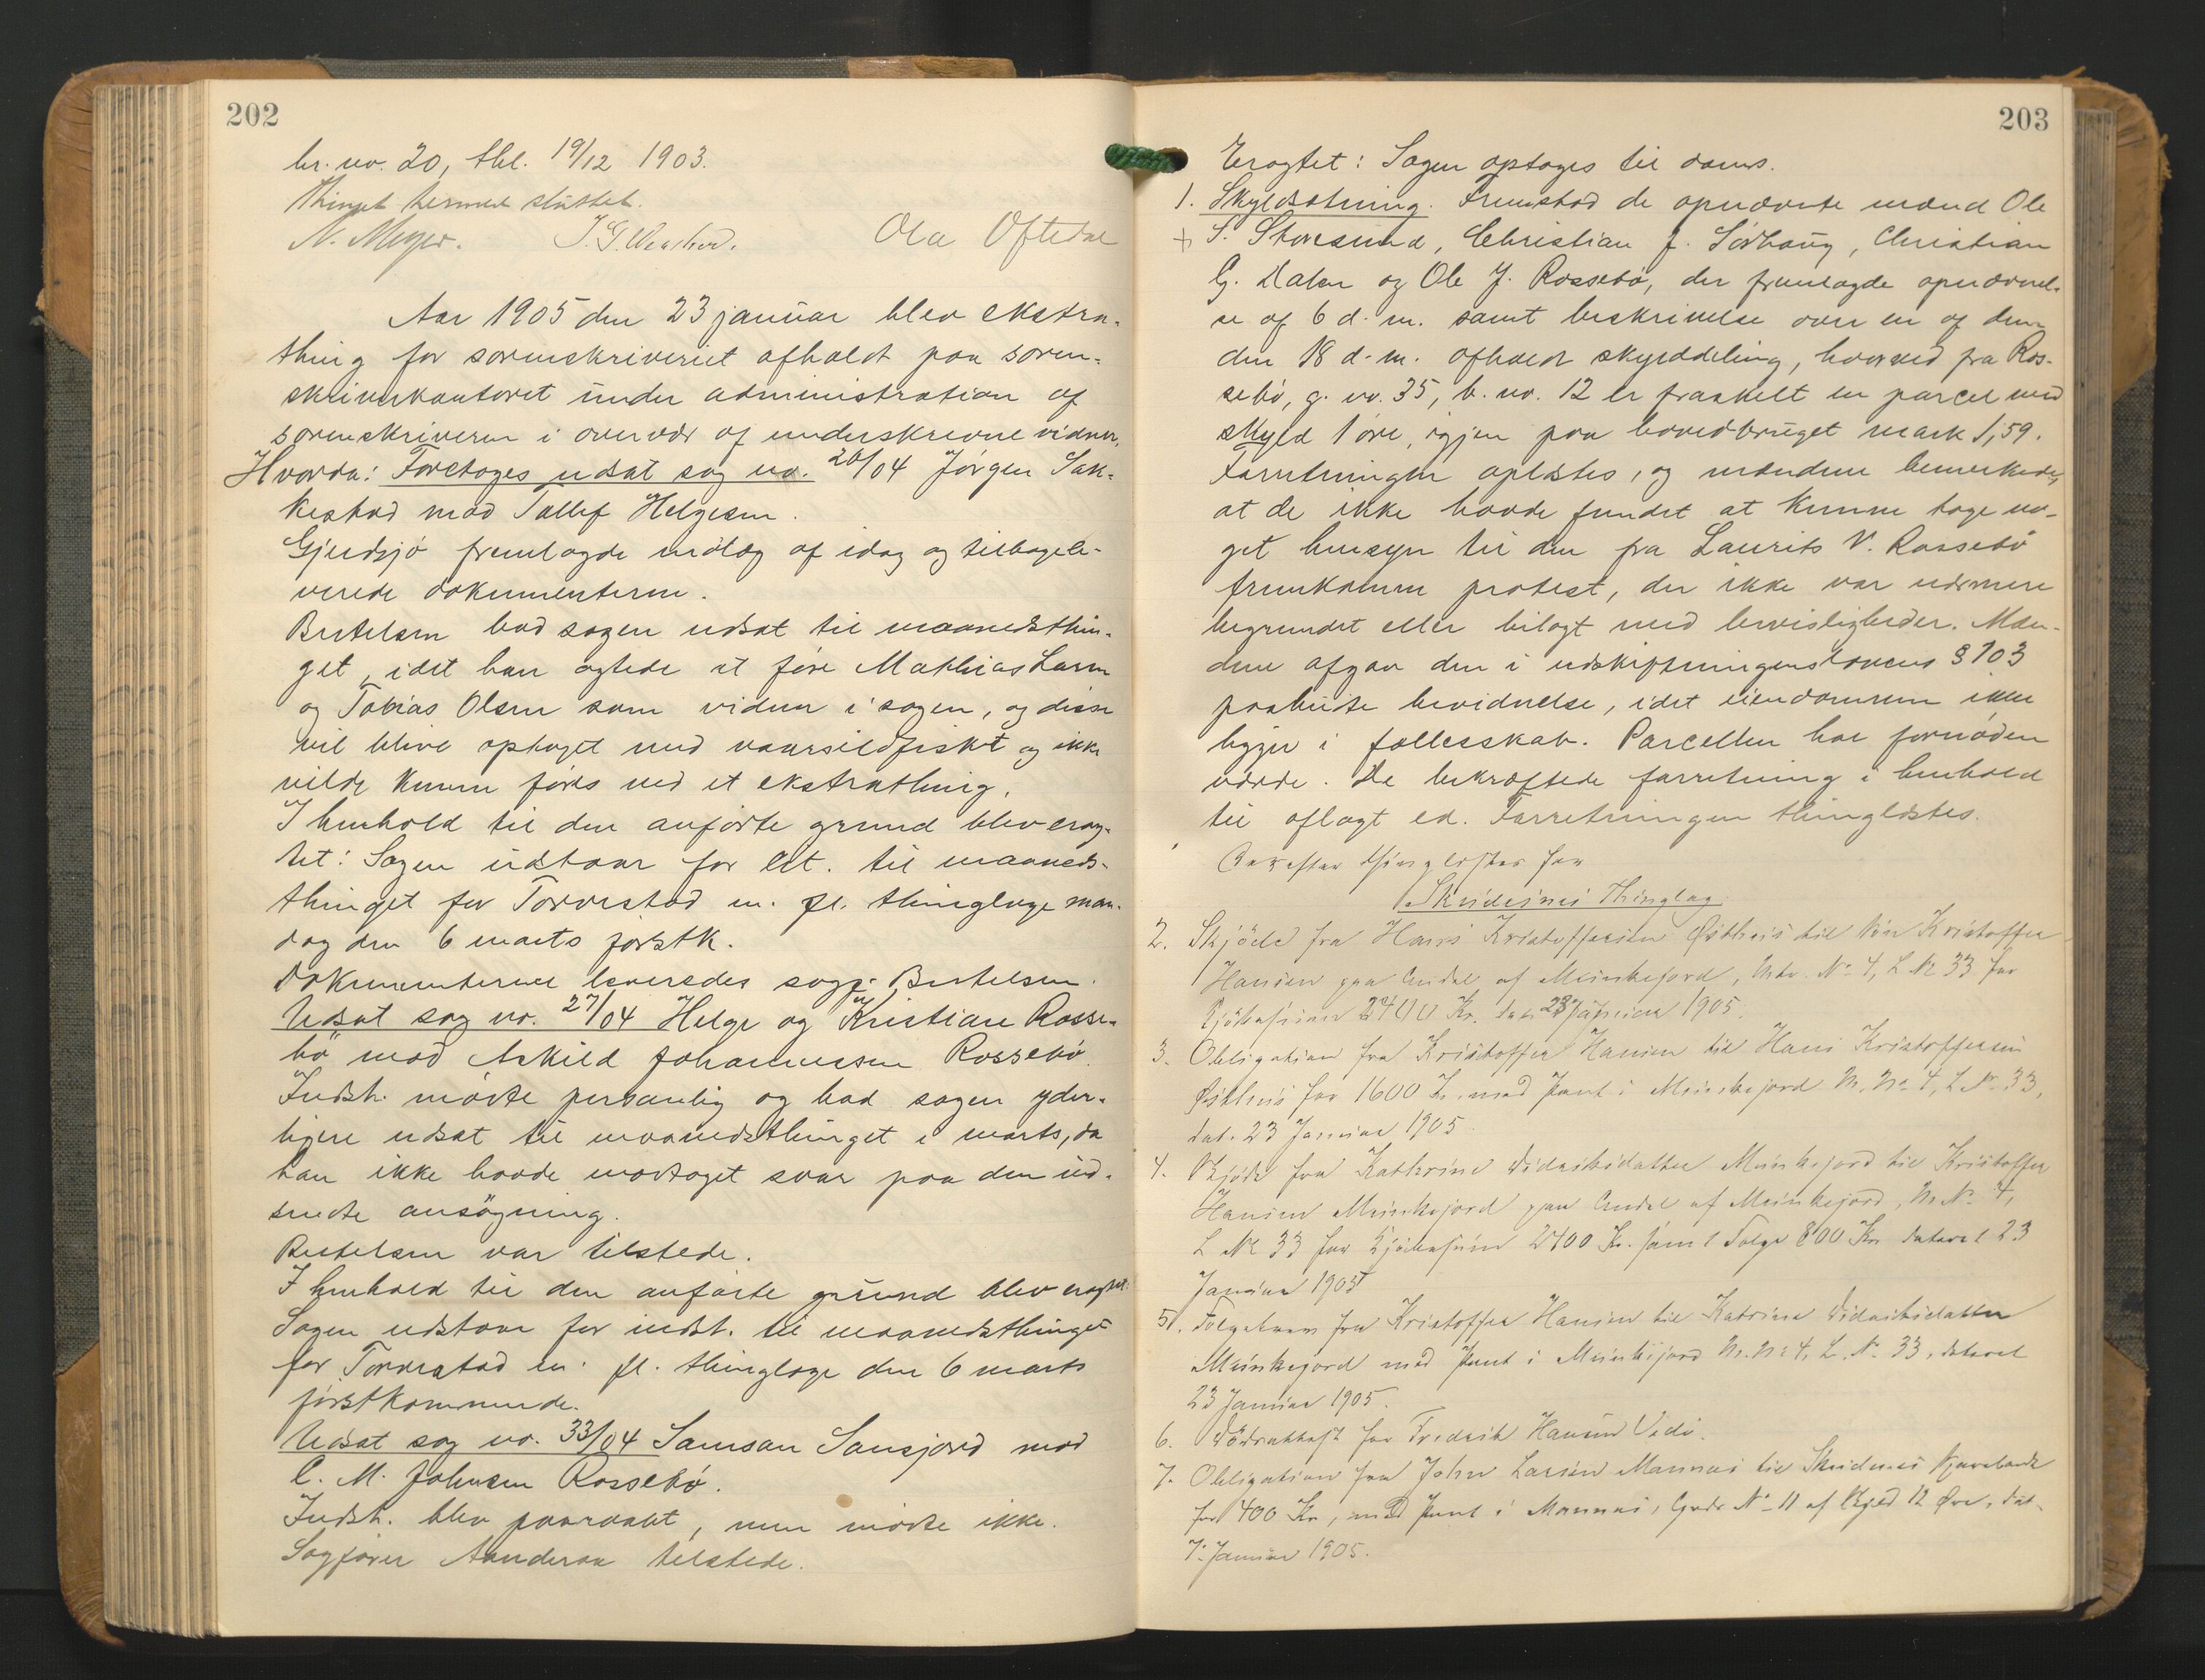 202
br. no. 20, thl. 19/12 1903.
Thinget hermed sluttet.
N. Meyer. Ola Oftedal
Aar 1905 den 23 januar blev ekstra-
thing for sorenskriveriet afholdt paa soren-
skriverkontoret under administration af
sorenskriveren i overvær af underskrevne vidner,
Hvorda: Foretoges udsat sag no. 20/04 Jørgen Sak-
kestad mod Tallef Helgesen.
Gjerdsjø fremlagde indlæg af idag og tilbagele-
verede dokumenterne.
Bertelsen bad sagen udsat til maanedsthin-
get, idet han agtede at føre Mathias Larsen
og Tobias Olsen som vidner i sagen, og disse
vil blive optaget med vaarsildfisket og ikke
vilde kunne føres ved et ekstrathing.
I henhold til den anførte grund blev erag-
tet: Sagen udstaar for cit. til maaneds-
thinget for Torvestad m. fl. thinglage man-
dag den 6 marts førstk.
Dokumenterne leveredes sagf. Bertelsen.
Udsat sag no. 27/04 Helge og Kristiane Rosse-
bø mod Askild Johannessen Rossebø.
Indst. mødte personlig og bad sagen yder-
ligere udsat til maanedsthinget i marts, da
han ikke havde modtaget svar paa den ind-
sendte ansøgning.
Bertelsen var tilstede.
I henhold til den anførte grund blev eragtet:
Sagen udstaar for indst. til maanedsthinget
for Torvestad m. fl. thinglage den 6 marts
førstkommende.
Udsat sag no. 33/04 Samson Sansjord mod
C. M. Johnsen Rossebø.
Indst. blev paaraabt, men mødte ikke.
Sagfører Aanderaa tilstede.
203
Eragtet: Sagen optages til doms.
1. Skyldsætning. Fremstod de opnævnte mænd Ole
+ S. Storesund, Christian J. Sørhaug, Christian
G. Dalen og Ole J. Rossebø, der fremlagde opnævnel-
se af 6 d. m. samt beskrivelse over en af dem
den 18 d. m. afholdt skylddeling, hvorved fra Ros-
sebø, g. no. 35, b. no. 12 er fraskilt en parcel med
skyld 1 øre, igjen paa hovedbruget mark 1,59.
Forretningen oplæstes, og mændene bemerkede,
at de ikke havde fundet at kunne tage no-
get hensyn til den fra Laurits V. Rossebø
fremkomne protest, der ikke var nærmere
begrundet eller bilagt med bevisligheder. Mæn-
dene afgav den i udskiftningenslovens § 103
paabudte bevidnelse, idet eiendommen ikke
ligger i fællesskab. Parcellen har fornøden
udrede. De bekræftede forretning i henhold
til aflagt ed. Forretningen thinglæstes.
Derefter thinglæstes for
Skudesnes Thinglag
2. Skjøde fra Hans Kristoffersen Østhus til Søn Kristoffer
Hansen paa Andel af Munkejord, Mtr. No 4, L No 33 for
Kjøbesum 2400 Kr. dat. 23 Januar 1905.
3. Obligation fra Kristoffer Hansen til Hans Kristoffersen
Østhus for 1600 Kr. med Pant i Munkejord M. No 4, L No 33,
dat. 23 Januar 1905.
4. Skjøde fra Kathrine Didriksdatter Munkejord til Kristoffer
Hansen Munkejord paa Andel af Munkejord, M. No 4,
L No 33 for Kjøbesum 2400 Kr. samt Folge 800 Kr dateret 23
Januar 1905
5. Folgebrev fra Kristoffer Hansen til Katrine Didriksdatter
Munkejord med Pant i Munkejord M. No 4, L. No 33, dateret
23 Januar 1905.
6. Dødsattest for Fredrik Hansen Vedø.
7. Obligation fra John Larsen Mannes til Skudenes Sparebank
for 400 Kr., med Pant i Mannes, Gards No 11 af Skyld 12 Øre, dat.
7. Januar 1905.